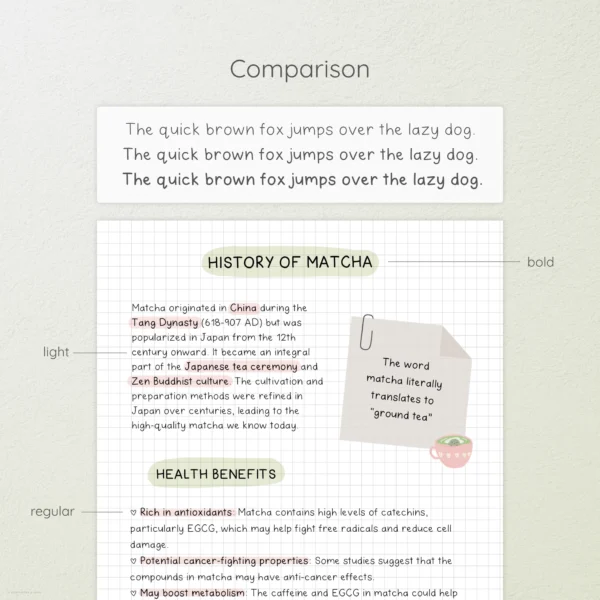 Comparison
The quick brown fox jumps over the lazy dog.
The quick brown fox jumps over the lazy dog.
The quick brown fox jumps over the lazy dog.
HISTORY OF MATCHA
bold
Matcha originated in China during the
Tang Dynasty (618-907 AD) but was
popularized in Japan from the 12th
century onward. It became an integral
part of the Japanese tea ceremony and
Zen Buddhist culture. The cultivation and
preparation methods were refined in
Japan over centuries, leading to the
high-quality matcha we know today.
light
The word
matcha literally
translates to
"ground tea"
HEALTH BENEFITS
regular
♡ Rich in antioxidants: Matcha contains high levels of catechins,
particularly EGCG, which may help fight free radicals and reduce cell
damage.
♡ Potential cancer-fighting properties: Some studies suggest that the
compounds in matcha may have anti-cancer effects.
♡ May boost metabolism: The caffeine and EGCG in matcha could help